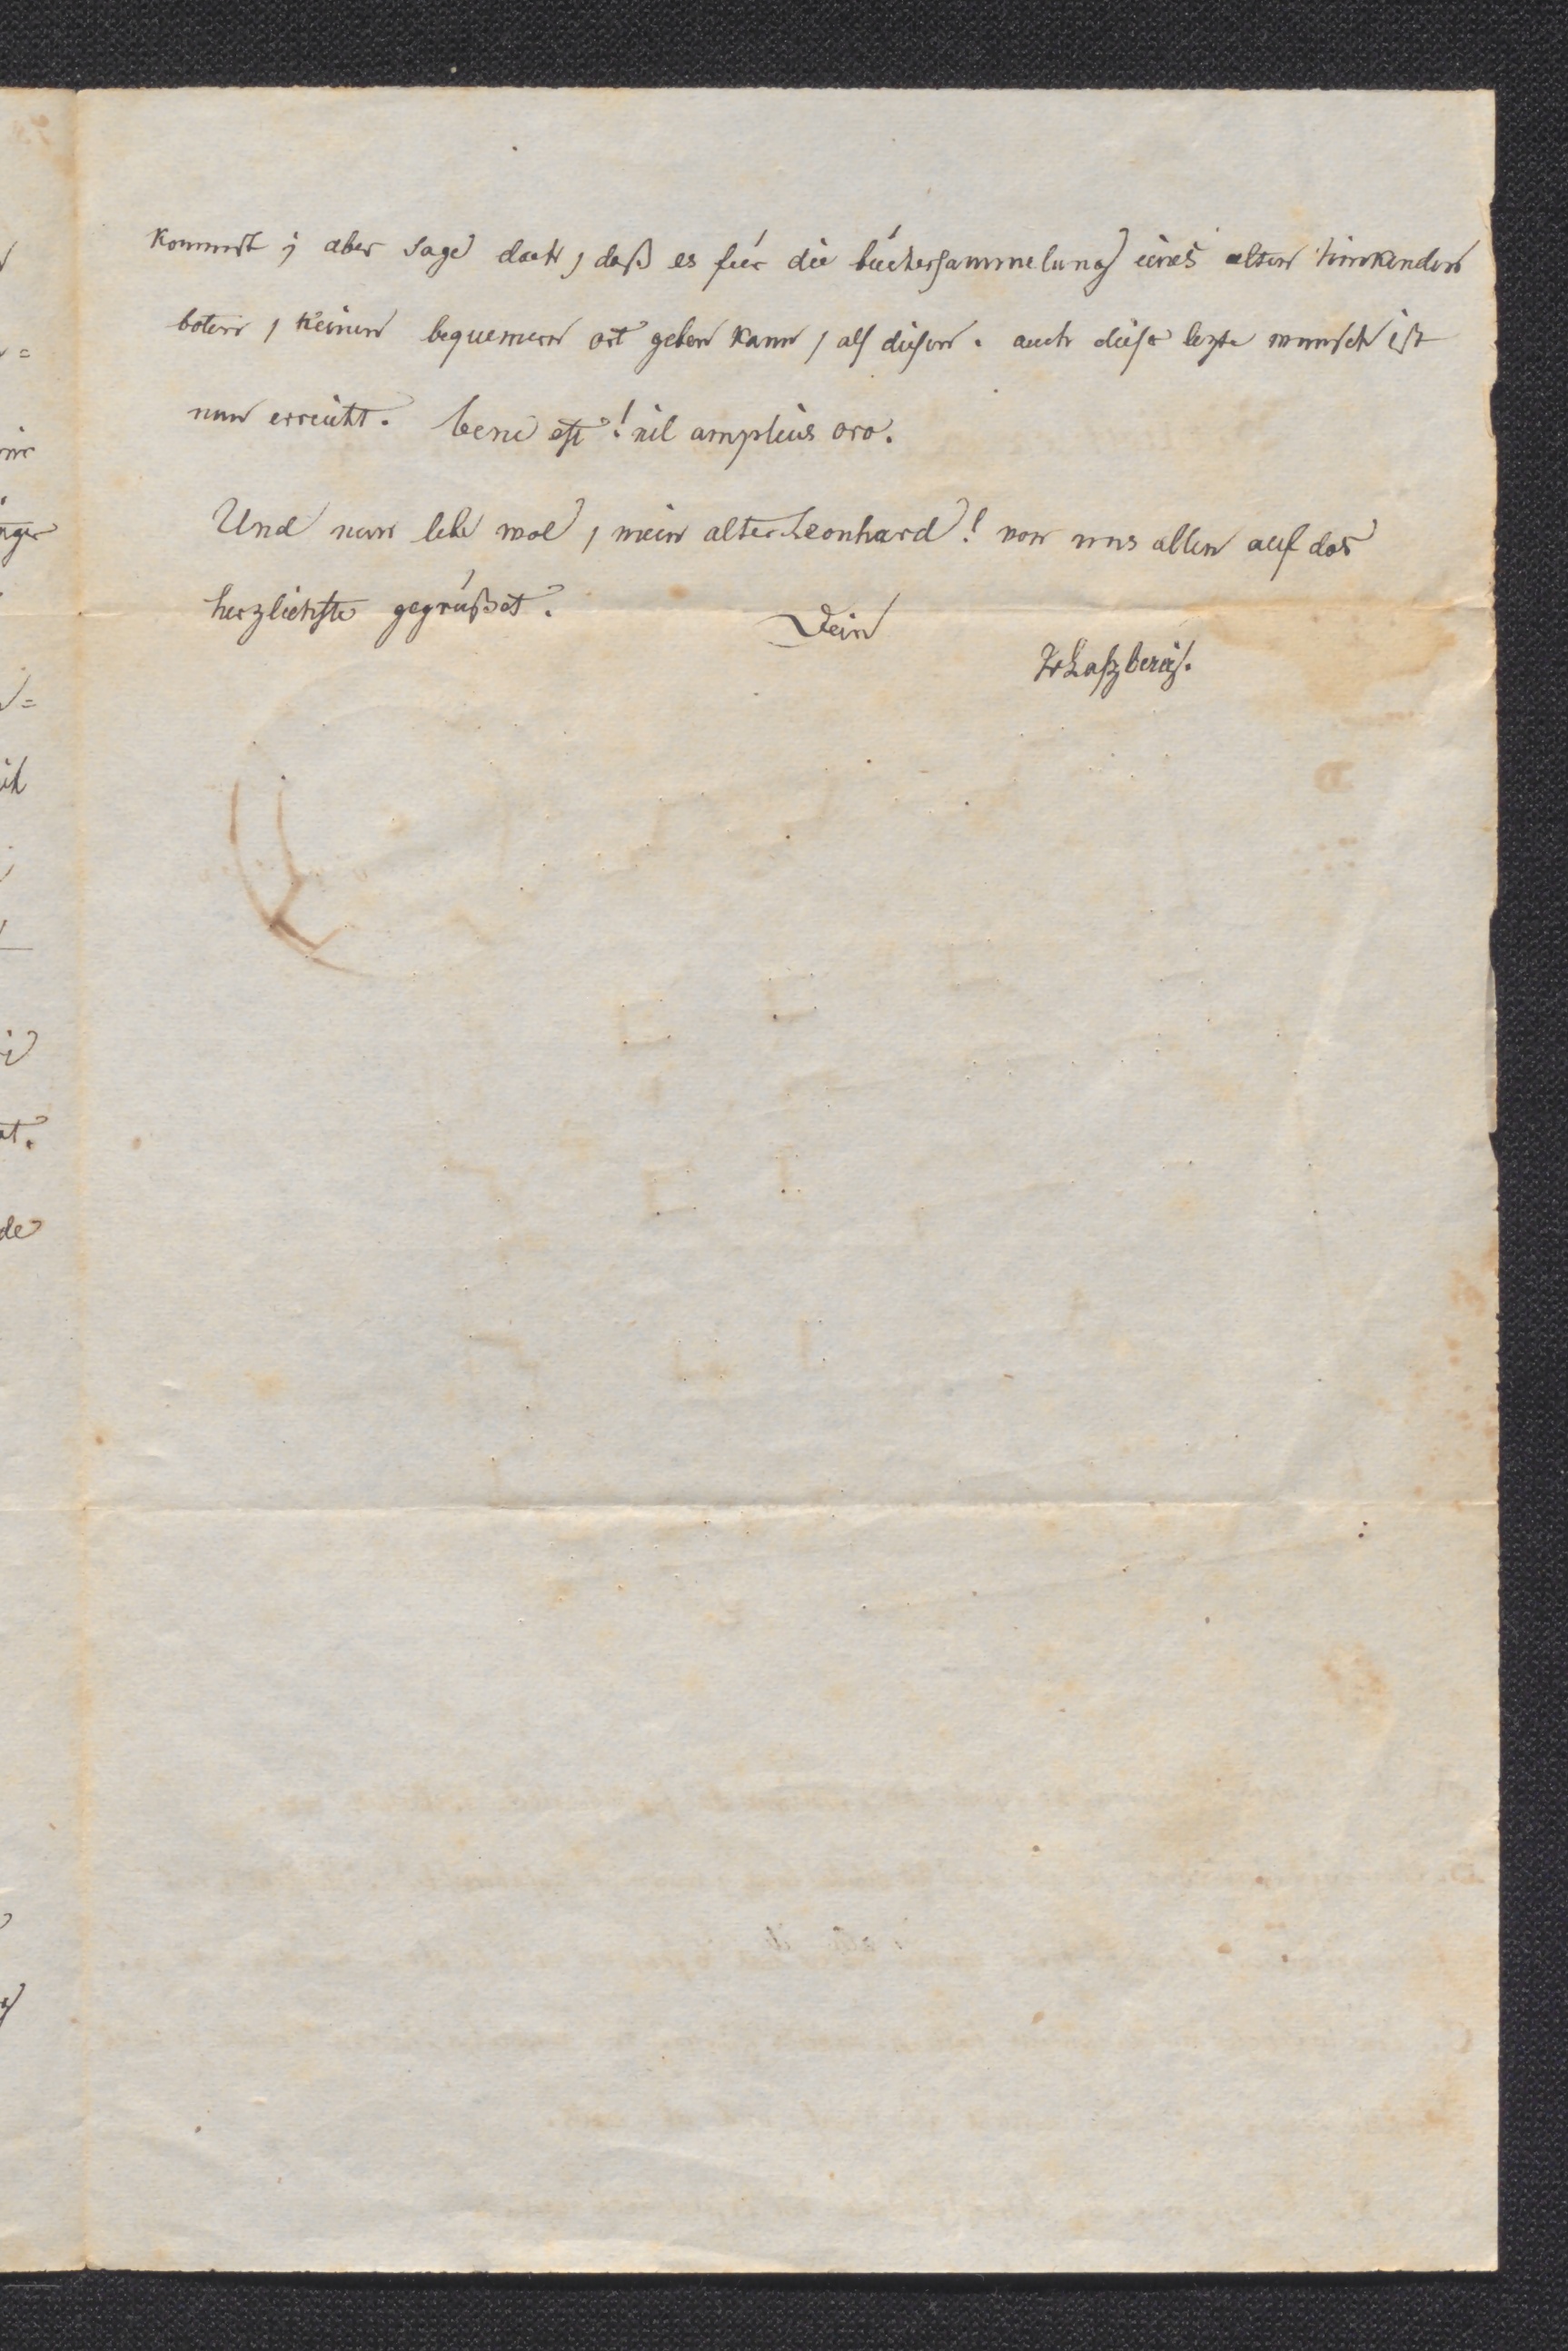 kommst; aber sage doch, daß es für die büchersammelung eines alten hinkenden
boten, keinen bequemern ort geben kann, als diesen. auch dieser lezte wunsch ist
nun erreicht. bene est! nil amplius oro.
Und nun lebe wol, mein alter Leonhard! von uns allen auf das
herzlichste gegrüßet.
Dein
JvLaßberg.